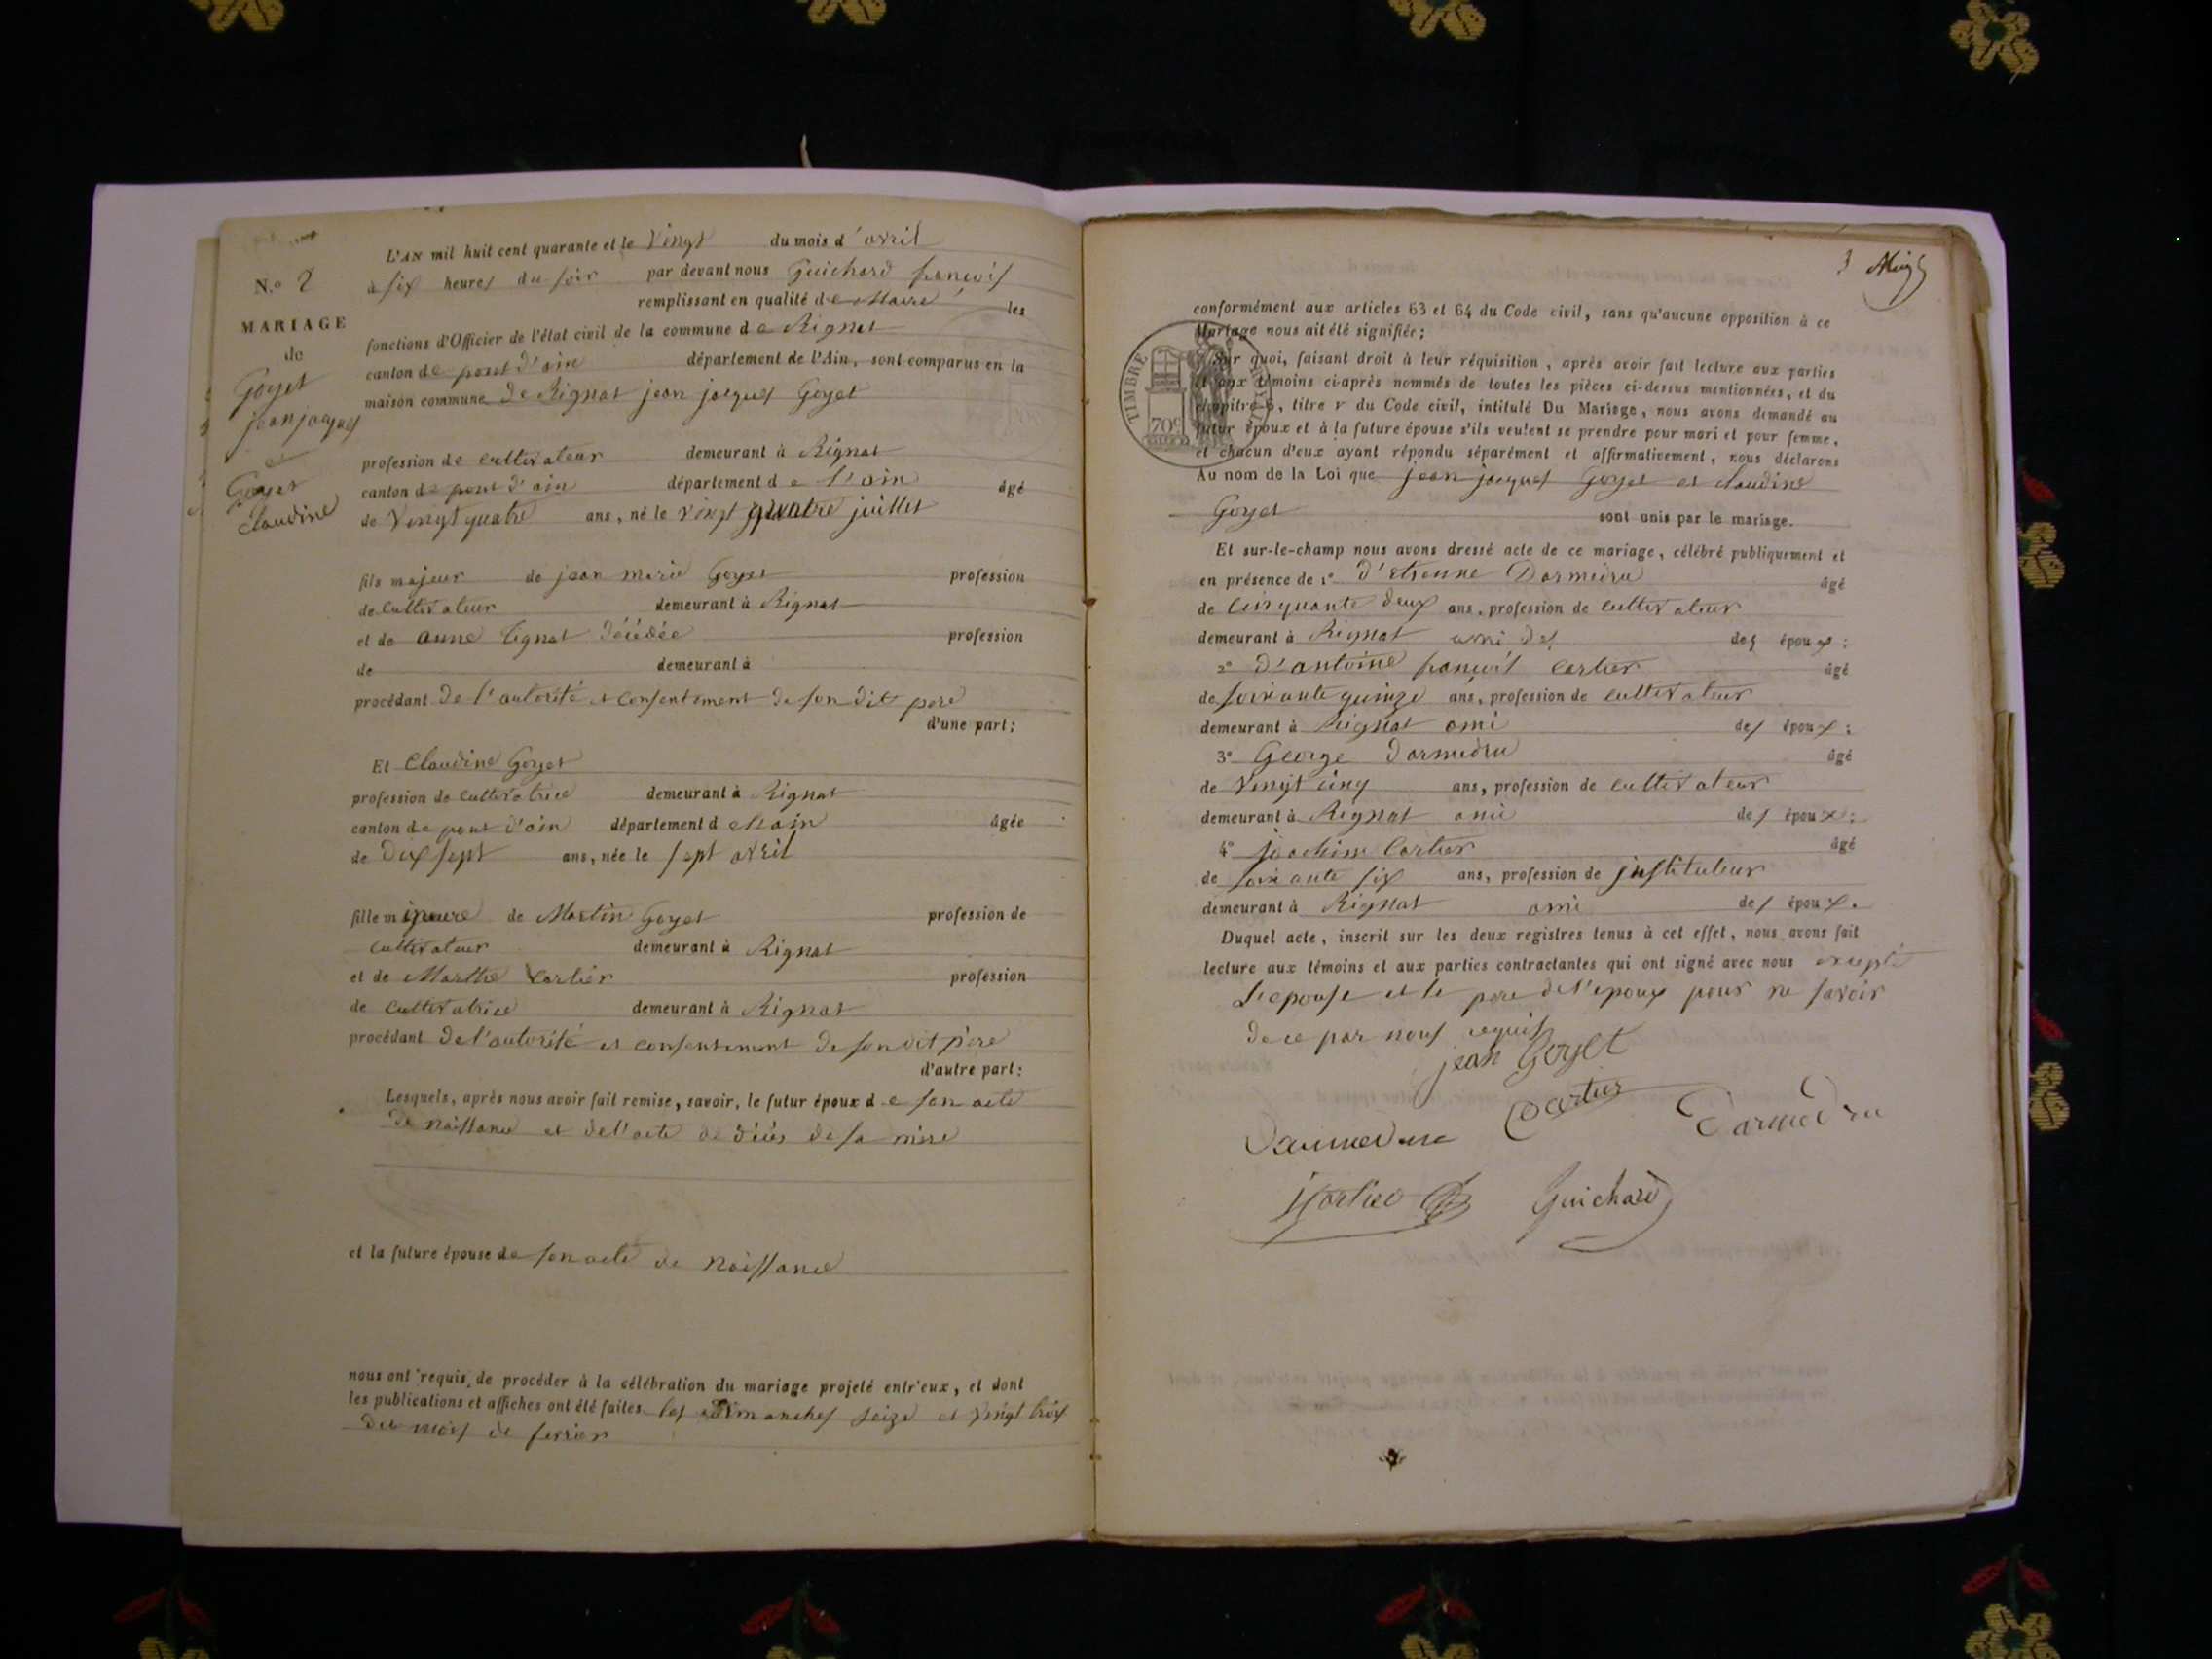 N.o 2
MARIAGE
de
Goyet
jean jacques
et
Goyet
Claudine
L'AN mil huit cent quarante et le Vingt du mois d'avril
a six heures du soir par devant nous Guichard françois
remplissant en qualité de Maire les
fonctions d'Officier de l'état civil de la commune de Rignat
canton de pont d'ain département de l'Ain, sont comparus en la
maison commune de Rignat jean jacques Goyet
profession de cultivateur demeurant à Rignat
canton de pont d'ain département de l'ain âgé
de Vingt quatre ans, né le vingt quatre juillet
fils majeur de jean marie Goyet profession
de cultivateur demeurant à Rignat
et de anne Tignat décédée profession
de demeurant à
procédant de l'autorité et consentement de son dit père
d'une part;
Et Claudine Goyet
profession de cultivatrice demeurant à Rignat
canton de pont d'ain département d ain âgée
de dix sept ans, née le sept avril
fille mineure de Martin Goyet profession de
cultivateur demeurant à Rignat
et de Marthe Cartier profession
de cultivatrice demeurant à Rignat
procédant de l'autorité et consentement de son dit père
d'autre part:
Lesquels, après nous avoir fait remise, savoir, le futur époux de son acte
de naissance et de l'acte de décès de sa mère
et la future épouse de son acte de naissance
nous ont requis de procéder à la célébration du mariage projeté entr'eux, et dont
les publications et affiches ont été faites les dimanches seize et vingt trois
du mois de fevrier
3
conformément aux articles 63 et 64 du Code civil, sans qu'aucune opposition à ce
Mariage nous ait été signifiée;
TIMBRE ROYAL
70c
Sur quoi, faisant droit à leur réquisition, après avoir fait lecture aux parties
et aux témoins ci-après nommés de toutes les pièces ci-dessus mentionnées, et du
chapitre 6, titre v du Code civil, intitulé Du Mariage, nous avons demandé au
futur époux et à la future épouse s'ils veulent se prendre pour mari et pour femme,
et chacun d'eux ayant répondu séparément et affirmativement, nous déclarons
Au nom de la Loi que jean jacques Goyet et claudine
Goyet sont unis par le mariage.
Et sur-le-champ nous avons dressé acte de ce mariage, célébré publiquement et
en présence de 1° d'etienne Darmedru âgé
de cinquante deux ans, profession de cultivateur
demeurant à Rignat ami des des époux;
2° d'antoine françois cartier âgé
de soixante quinze ans, profession de cultivateur
demeurant à Rignat ami des époux;
3° George Darmedru âgé
de Vingt cinq ans, profession de cultivateur
demeurant à Rignat ami des époux;
4° joachim Cartier âgé
de soixante six ans, profession de instituteur
demeurant à Rignat ami des époux.
Duquel acte, inscrit sur les deux registres tenus à cet effet, nous avons fait
lecture aux témoins et aux parties contractantes qui ont signé avec nous excepté
L'epouse et le pere de l'epoux pour ne savoir
de ce par nous requis
jean Goyet
Cartier
Darmedru
Darmedru
Cartier
Guichard